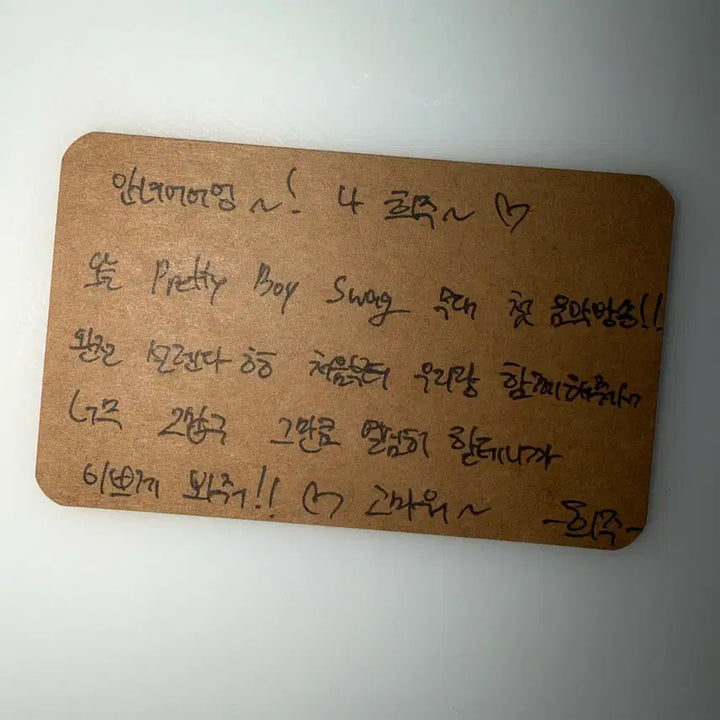 안녀어어엉 ~! 나 희주~ ♡
오늘 Pretty Boy Swag 무대 첫 음악방송!!
완전 설렌다 ㅎㅎ 처음부터 우리랑 함께해줘서
너무 고맙구 그만큼 열심히 할테니까
이쁘게 봐줘!! ♡ 고마워~ -희주-